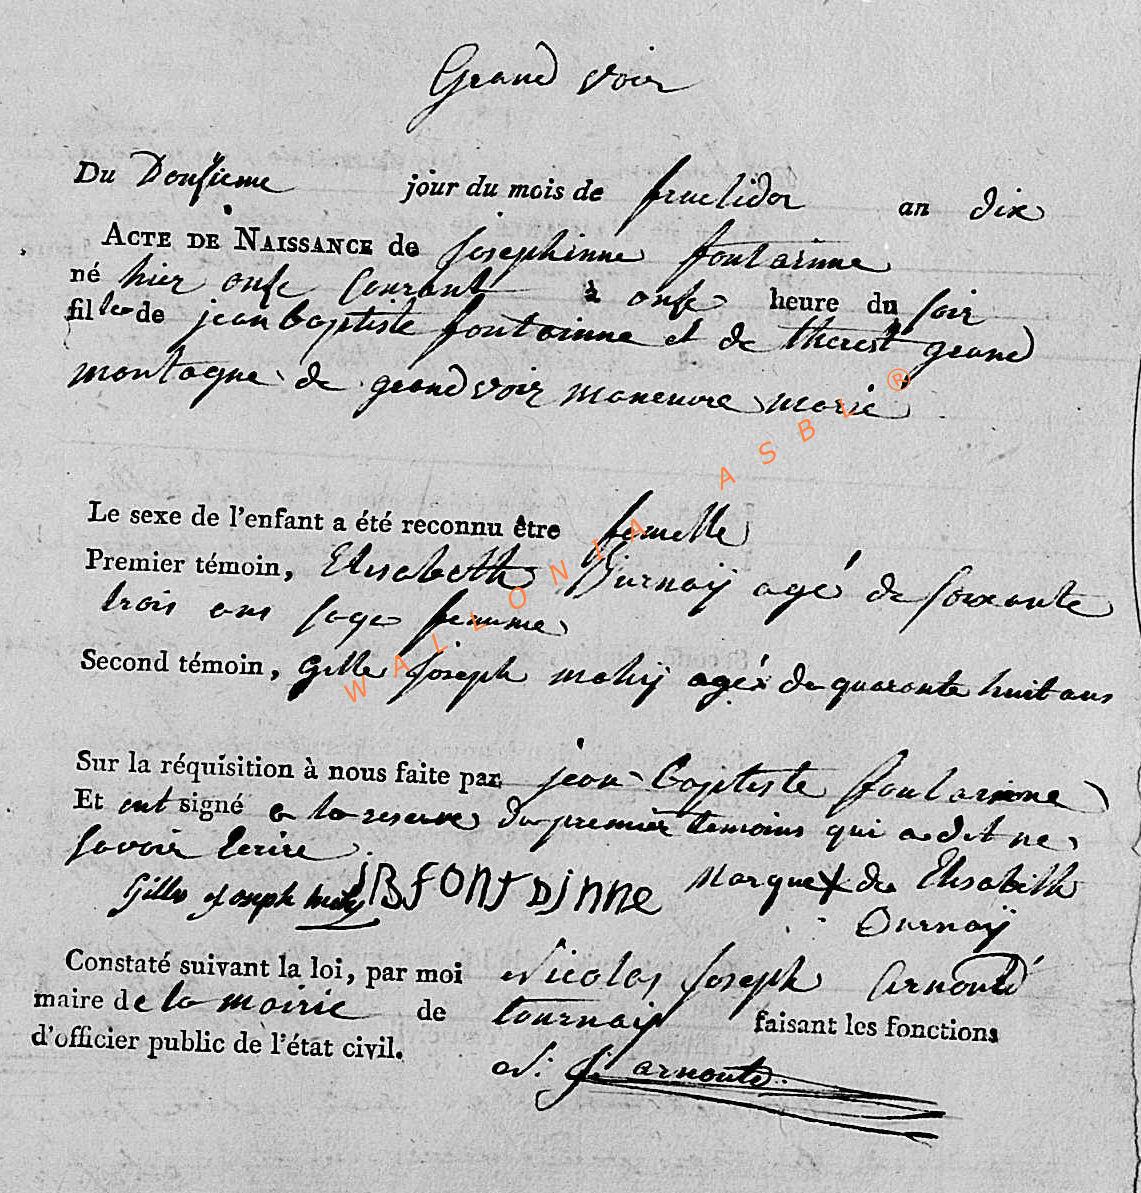 Grand voir
Du Dousieme jour du mois de fructidor an dix
ACTE DE NAISSANCE de Josephinne fontainne
né hier onse Courant à onse heure du soir
fille de jean baptiste fontainne et de therest grand
montagne de grandvoir maneuvre marié
Le sexe de l'enfant a été reconnu être femelle
Premier témoin, Elisabeth Durnaÿ agé de soixante
trois ans sage femme
Second témoin, Gille Joseph mahÿ agé de quaronte huit ans
Sur la réquisition à nous faite par jean-baptiste fontainne
Et ont signé a la reserve du premier temoins qui a dit ne
savoir Ecrire
Gille Joseph mahy JBfONTDINNe Marque X de Elisabeth
Durnaÿ
Constaté suivant la loi, par moi Nicolas Joseph Arnould
maire de la mairie de tournay faisant les fonctions
d'officier public de l'état civil.
N: J: arnould
WALLONIA ASBL ®